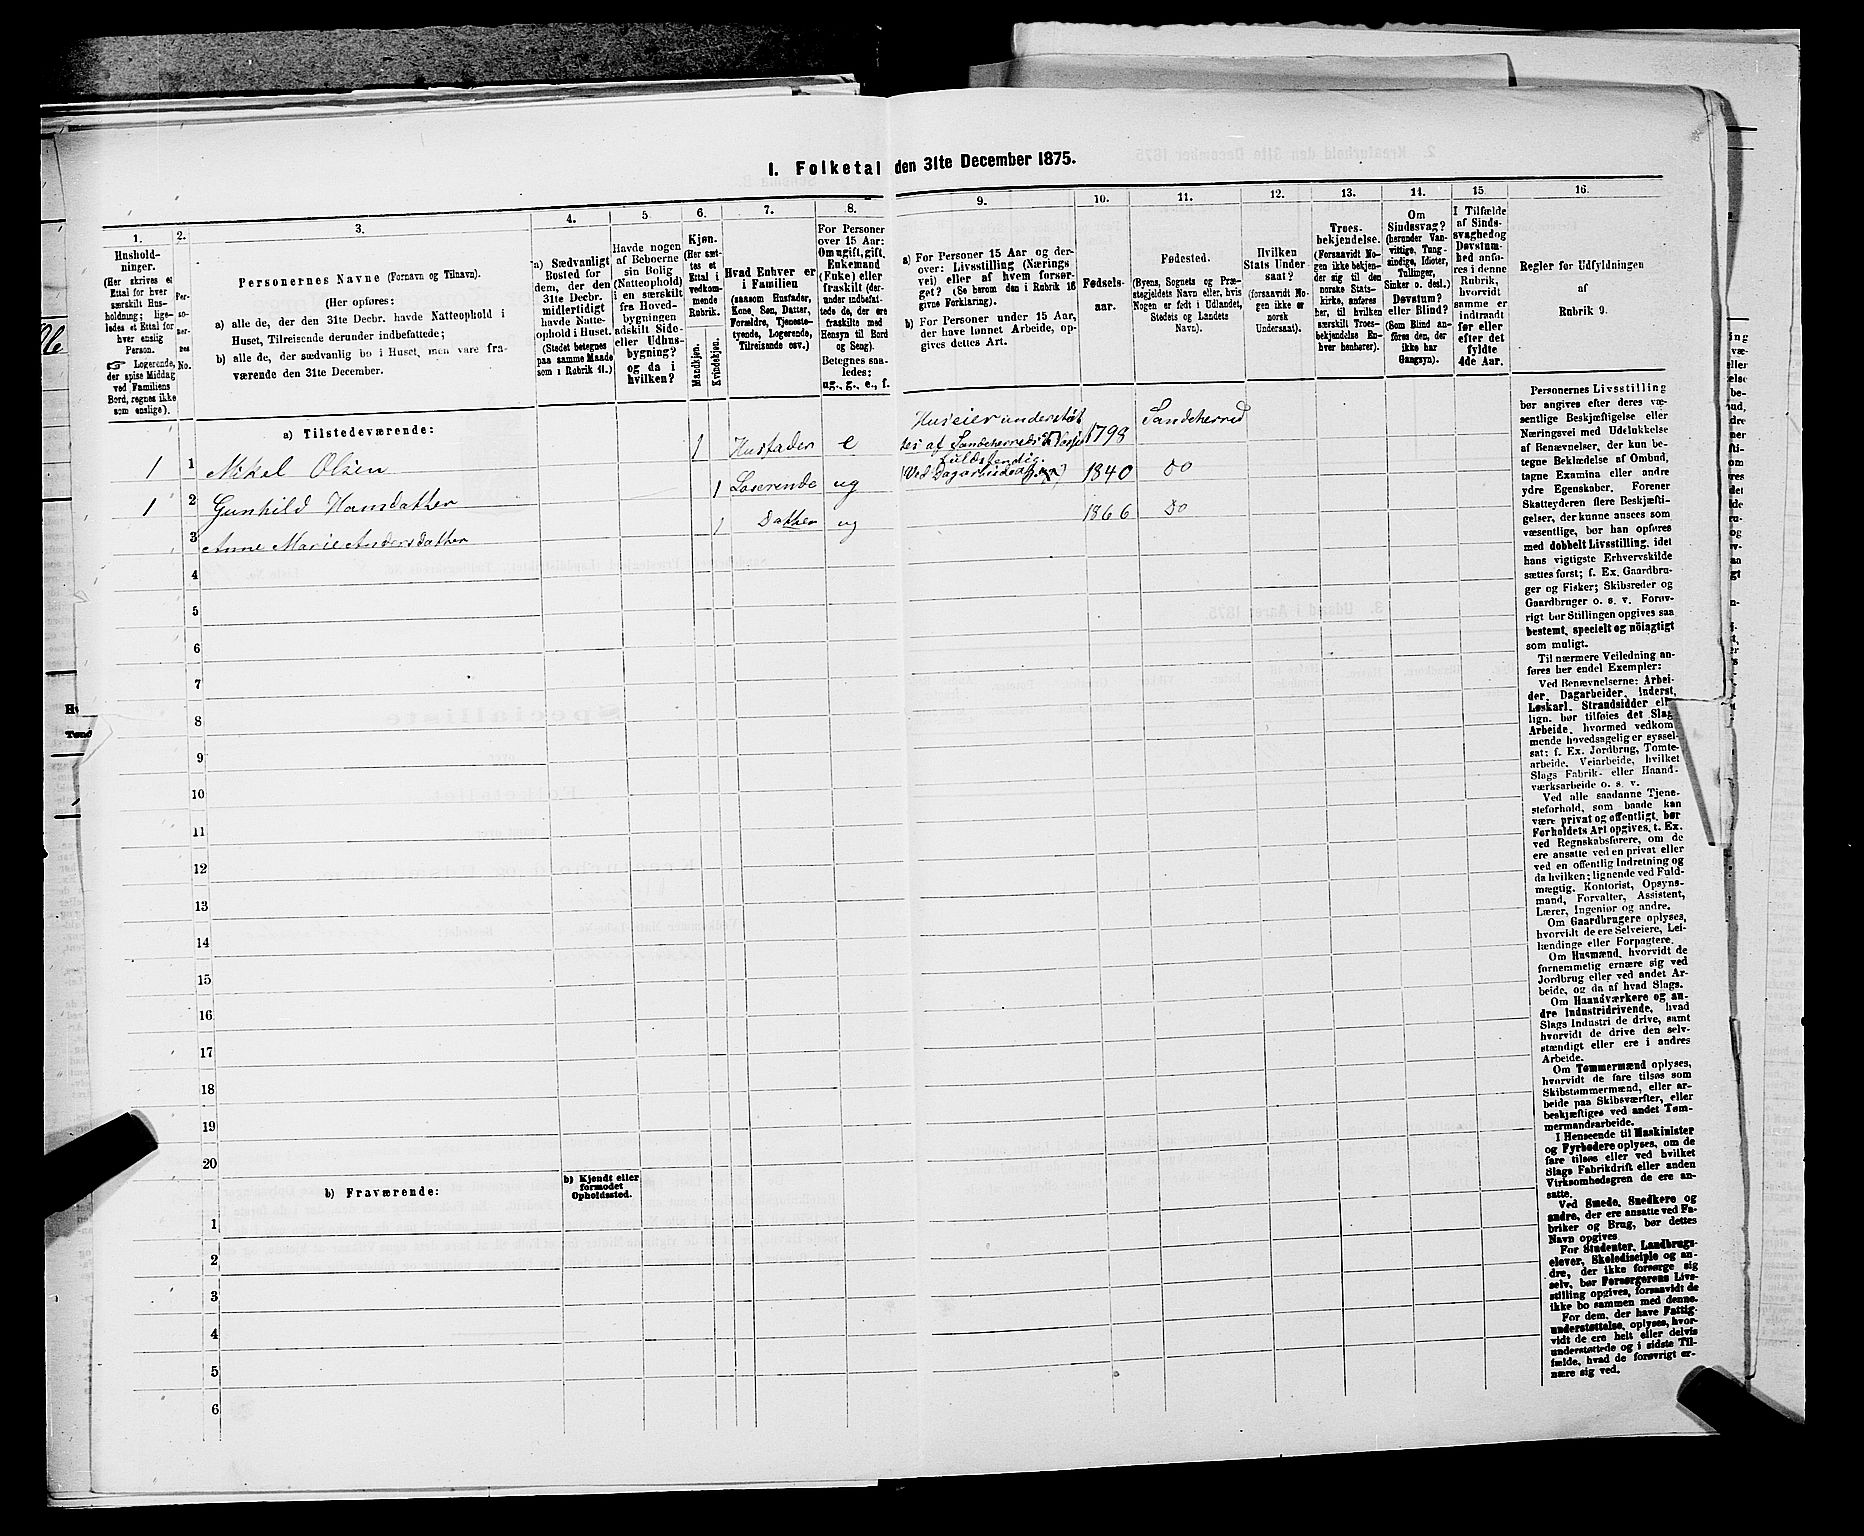 1. Folketal den 31te December 1875.
1.
2.
3.
4.
5.
6.
7.
8.
9.
10.
11.
12.
13.
14.
15
16.
Hushold-
ninger.
(Her skrives et
Ettal for hver
særskilt Hus-
holdning; lige-
ledes et Ettal for
hver enslig
Person.
☞ Logerende,
der spise Middag
ved Familiens
Bord, regnes ikke
som enslige).
Per-
so-
ner-
nes
No.
Personernes Navne (Fornavn og Tilnavn).
(Her opføres:
a) alle de, der den 31te Decbr. havde Natteophold i
Huset, Tilreisende derunder indbefattede;
b) alle de, der sædvanlig bo i Huset, men vare fra-
værende den 31te December.
a) Sædvanligt
Bosted for
dem, der den
31te Decbr.
midlertidigt
havde Natte-
ophold i Huset.
(Stedet betegnes
paa samme Maade
som i Rubrik 11.)
Havde nogen
af Beboerne
sin Bolig
(Natteophold)
i en særskilt
fra Hoved-
bygningen
adskilt Side-
eller Udhus-
bygning?
og da i
hvilken?
Kjøn.
(Her sæt-
tes et
Ettal i
vedkom-
mende
Rubrik.
Mandkjøn.
Kvindekjøn.
Hvad Enhver er
i Familien
(saasom Husfader,
Kone, Søn, Datter,
Forældre, Tjeneste-
tyende, Logerende,
Tilreisende osv.)
For Personer
over 15 Aar:
Om ugift, gift,
Enkemand
(Enke) eller
fraskilt (der-
under indbefat-
tede de, der ere
fraskilte med
Hensyn til Bord
og Seng).
Betegnes saa-
ledes:
ug., g., e., f.
a) For Personer 15 Aar og der-
over: Livsstilling (Nærings
vei) eller af hvem forsør-
get? (Se herom den i Rubrik 16
givne Forklaring).
b) For Personer under 15 Aar,
der have lønnet Arbeide, op-
gives dettes Art.
Fødsels-
aar.
Fødested.
(Byens, Sognets og Præ-
stegjeldets Navn eller, hvis
Nogen er født i Udlandet,
Stedets og Landets
Navn).
Hvilken
Stats Under
saat?
(forsaavidt No-
gen ikke er
norsk
Undersaat).
Troes-
bekjendelse.
(Forsaavidt No-
gen ikke bekjen-
der sig til den
norske Stats-
kirke, anføres
her, til hvilken
særskilt Troes-
bekjendelse En-
hver henhører).
Om
Sindssvag?
(herunder Van-
vittige, Tung-
sindige, Idioter,
Tullinger,
Sinker o. desl.)
Døvstum?
eller Blind?
(Som Blind an-
føres den, der
ikke har
Gangsyn).
I Tilfælde
af Sinds-
svaghed og
Døvstum-
hed anfø-
res i denne
Rubrik,
hvorvidt
samme er
indtraadt
før eller
efter det
fyldte
4de Aar.
Regler for Udfyldningen
af
Rubrik 9.
a) Tilstedeværende:
1 1 Nikel Olsen 1 Husfader e Huseier understøt
tes af Sandeherreds 1798 Sandeherred
fuldstendig.
1 2 Gunhild Hansdather 1 Loserende ug Ved 1840 do
3 Anne Marie Andersdather 1 Dather ug 1866 Do
4
5
6
7
8
9
10
11
12
13
14
15
16
17
18
19
20
b) Fraværende:
b) Kjendt eller
formodet
Opholdssted.
1
2
3
4
5
6
Personernes Livsstilling
bør angives efter deres væ-
sentlige Beskjæftigelse eller
Næringsvei med Udelukkelse
af Benævnelser, der kun be-
tegne Beklædelse af Ombud,
tagne Examina eller andre
ydre Egenskaber. Forener
Skatteyderen flere Beskjæfti-
gelser, der kunne ansees som
væsentlige, bør han opføres
med dobbelt Livsstilling, idet
hans vigtigste Erhvervskilde
sættes først; f. Ex. Gaardbru-
ger og Fisker; Skibsreder og
Gaardbruger o. s. v. Forøv-
rigt bør Stillingen opgives saa
bestemt, specielt og nöiagtigt
som muligt.
Til nærmere Veiledning an-
føres her endel Exempler:
Ved Benævnelserne: Arbei-
der, Dagarbeider, Inderst,
Løskarl, Strandsidder ell.
lign. bør tilføies det Slag
Arbeide, hvormed vedkom
mende hovedsagelig er syssel-
sat; f. Ex. Jordbrug, Tomte-
arbeide, Veiarbeide, hvilket
Slags Fabrik- eller Haand-
værksarbeide o. s. v.
Ved alle saadanne Tjene-
steforhold, som baade kan
være privat og offentligt, bør
Forholdets Art opgives, t. Ex.
ved Regnskabsførere, om de
ere ansatte ved en privat eller
ved en offentlig Indretning og
da hvilken; lignende ved Fuld-
mægtig, Kontorist, Opsyns-
mand, Forvalter, Assistent,
Lærer, Ingeniør og andre.
Om Gaardbrugere oplyses,
hvorvidt de ere Selveiere, Lei-
lændinge eller Forpagtere.
Om Husmænd, hvorvidt de
fornemmelig ernære sig ved
Jordbrug eller ved andet Ar-
beide, og da af hvad Slags.
Om Haandværkere og an-
dre Industridrivende, hvad
Slags Industri de drive, samt
hvorvidt de drive den selv-
stændigt eller ere i andres
Arbeide.
Om Tømmermænd oplyses,
hvorvidt de fare tilsøs som
Skibstømmermænd, eller ar-
beide paa Skibsværfter, eller
beskjæftiges ved andet Tøm-
mermandsarbeide.
I Henseende til Maskinister
og Fyrbødere oplyses, om de
fare tilsøs eller ved hvilket
Slags Fabrikdrift eller anden
Virksomhedsgren de ere an-
satte.
Ved Smede, Snedkere og
andre, der ere ansatte ved Fa-
briker og Brug, bør dettes
Navn opgives
For Studenter, Landbrugs-
elever, Skoledisciple og an-
dre, der ikke forsørge sig
selv, bør Forsørgerens Livs-
stilling opgives, forsaavidt de
ikke bo sammen med denne.
For dem, der have Fattig-
understøttelse, oplyses, hvor-
vidt de ere helt eller delvis
understøttede og i sidste Til-
fælde, hvad de forøvrigt er-
nære sig ved.